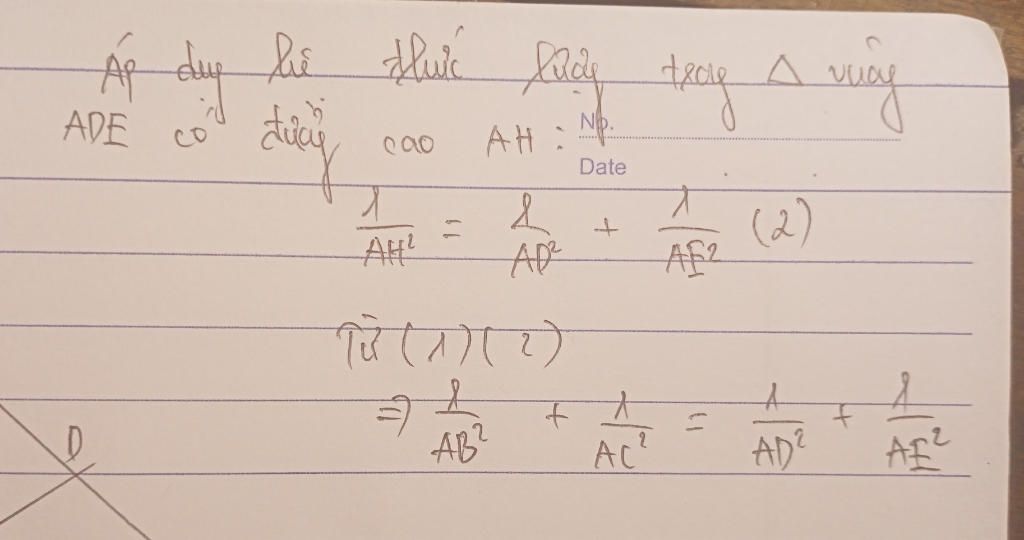 Áp dụng hệ thức lượng trong Δ vuông
No.
ADE có đường cao AH :
Date
1/AH² = 1/AD² + 1/AE² (2)
Từ (1) (2)
⇒ 1/AB² + 1/AC² = 1/AD² + 1/AE²
D